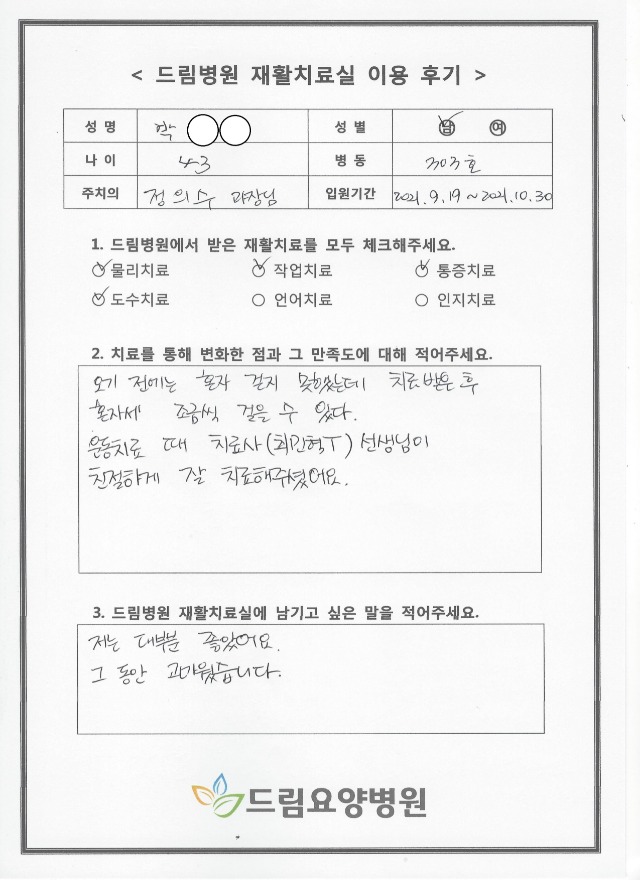 < 드림병원 재활치료실 이용 후기 >
성 명 박 성 별 남 여
나 이 43 병 동 303호
주치의 정의수 과장님 입원기간 2021.9.19~2021.10.30
1. 드림병원에서 받은 재활치료를 모두 체크해주세요.
물리치료 작업치료 통증치료
도수치료 언어치료 인지치료
2. 치료를 통해 변화한 점과 그 만족도에 대해 적어주세요.
오기 전에는 혼자 걷지 못했는데 치료받은 후
혼자세 조금씩 걸을 수 있다.
운동치료 때 치료사(최민혁T) 선생님이
친절하게 잘 치료해주셨어요.
3. 드림병원 재활치료실에 남기고 싶은 말을 적어주세요.
저는 대부분 좋았어요.
그 동안 고마웠습니다.
드림요양병원